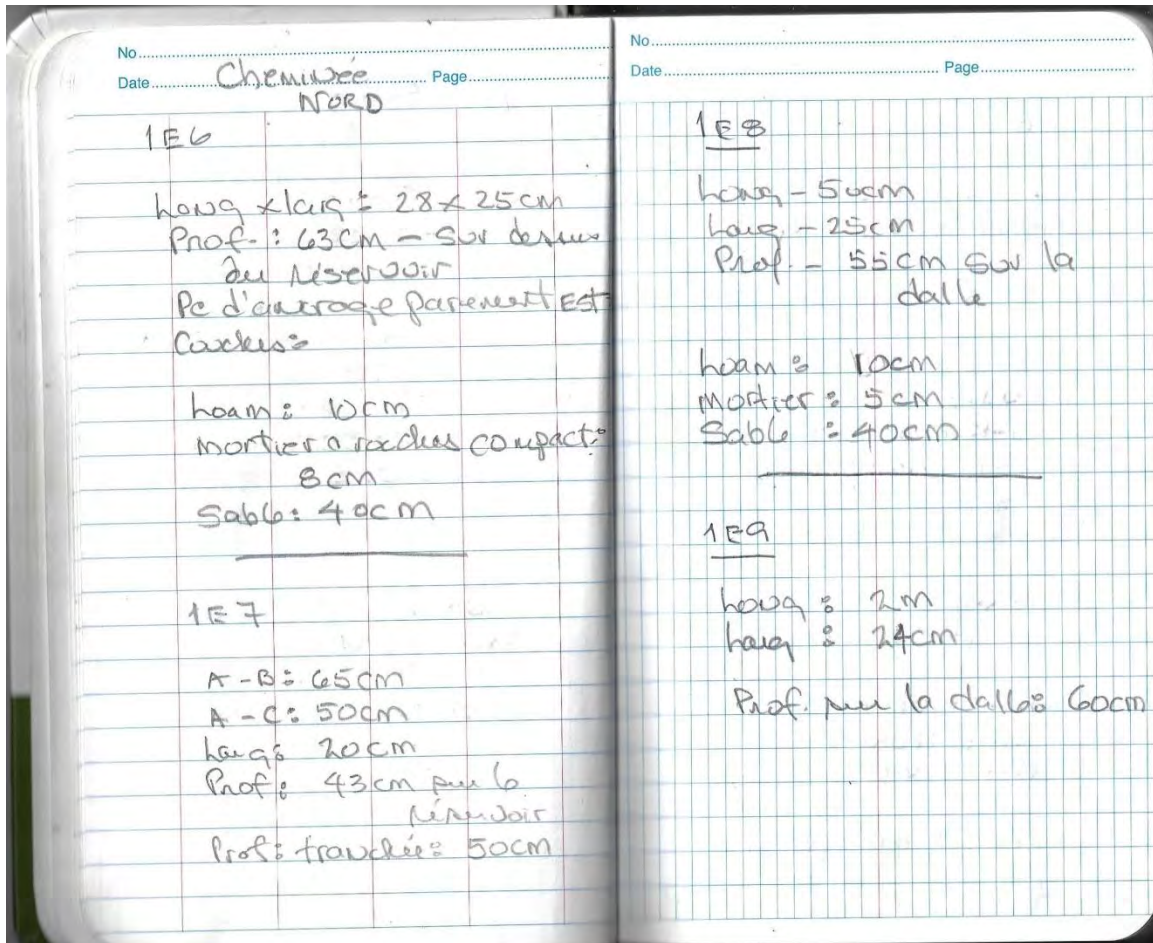 No
Date Cheminée Page
NORD
1E6
Long x larg : 28 x 25 cm
Prof. : 63 cm - sur dessus
du réservoir
Pc d'ancrage parement EST
Couches :
Loam : 10 cm
Mortier à roches compact :
8 cm
Sable : 40 cm
1E7
A - B : 65 cm
A - C : 50 cm
Larg : 20 cm
Prof : 43 cm sur le
réservoir
Prof : tranchée : 50 cm
No
Date Page
1E8
Long - 50 cm
Larg - 25 cm
Prof. - 55 cm sur la
dalle
Loam : 10 cm
Mortier : 5 cm
Sable : 40 cm
1E9
Long : 2 m
Larg : 24 cm
Prof. sur la dalle : 60 cm